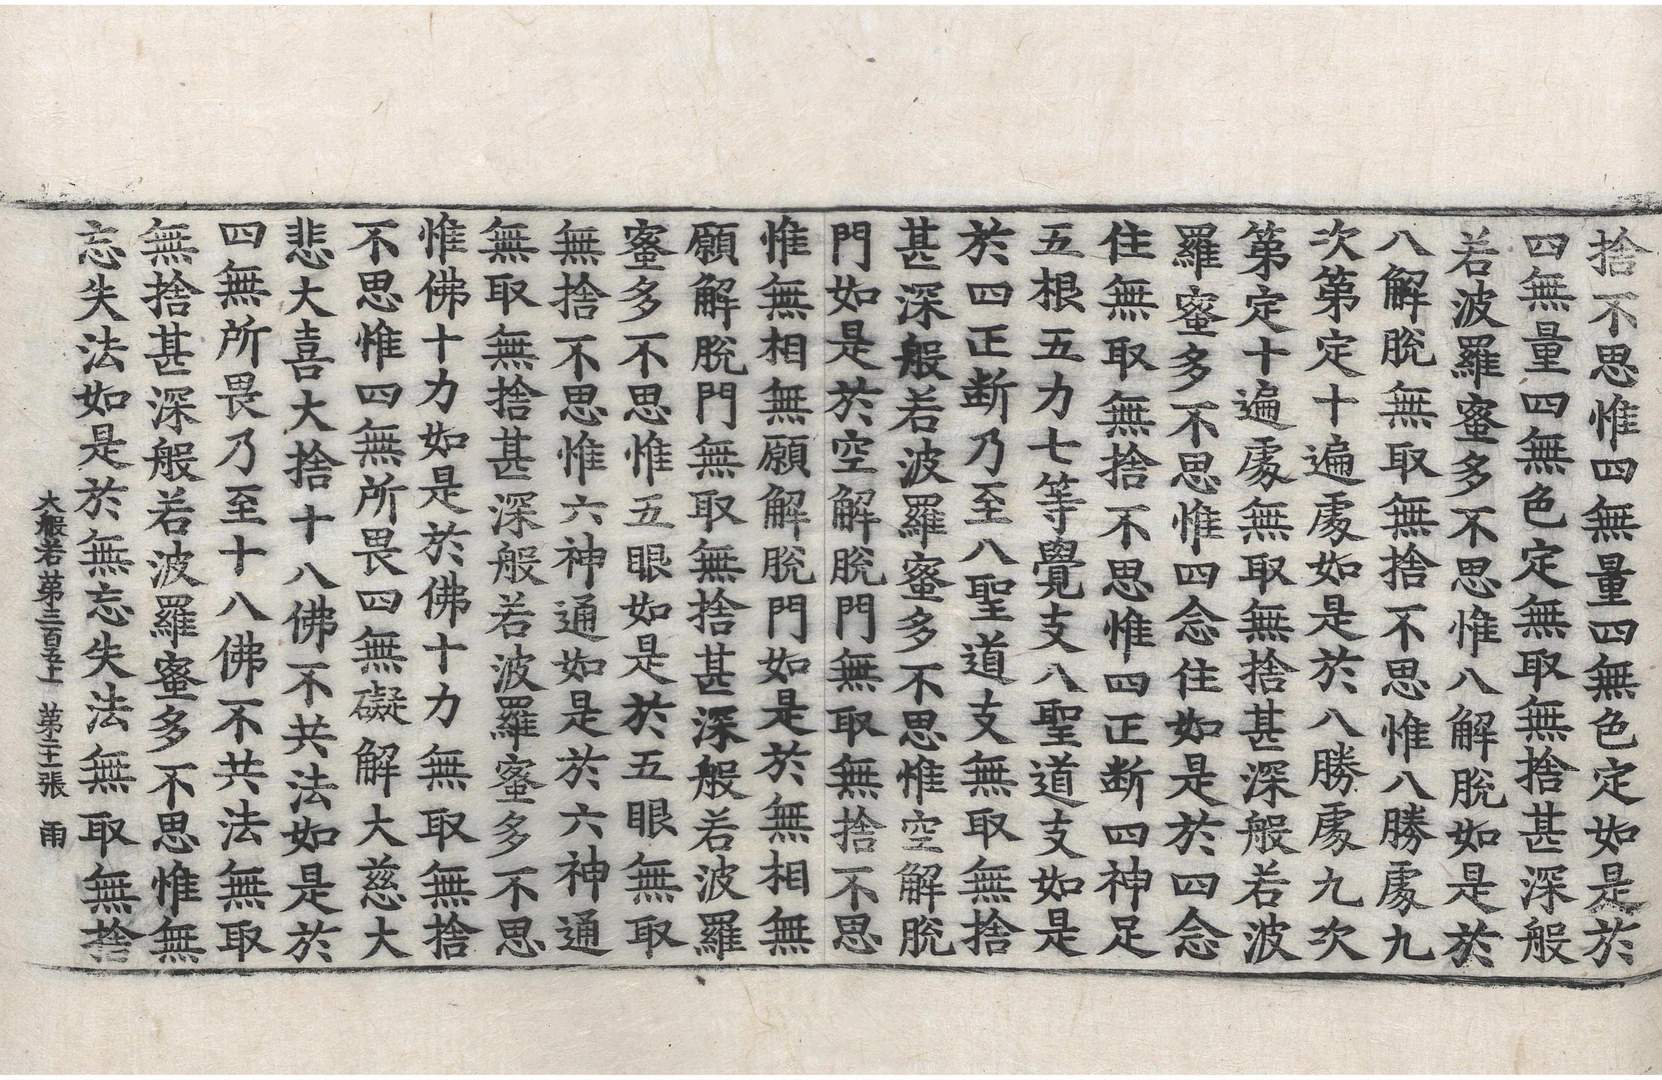 捨不思惟四無量四無色定如是於
四無量四無色定無取無捨甚深般
若波羅蜜多不思惟八解脫如是於
八解脫無取無捨不思惟八勝處九
次第定十遍處如是於八勝處九次
第定十遍處無取無捨甚深般若波
羅蜜多不思惟四念住如是於四念
住無取無捨不思惟四正断四神足
五根五力七等覺支八聖道支如是
於四正断乃至八聖道支無取無捨
甚深般若波羅蜜多不思惟空解脫
門如是於空解脫門無取無捨不思
惟無相無願解脫門如是於無相無
願解脫門無取無捨甚深般若波羅
蜜多不思惟五眼如是於五眼無取
無捨不思惟六神通如是於六神通
無取無捨甚深般若波羅蜜多不思
惟佛十力如是於佛十力無取無捨
不思惟四無所畏四無礙解大慈大
悲大喜大捨十八佛不共法如是於
四無所畏乃至十八佛不共法無取
無捨甚深般若波羅蜜多不思惟無
忘失法如是於無忘失法無取無捨
大般若第三百五十一 第二十一張 雨